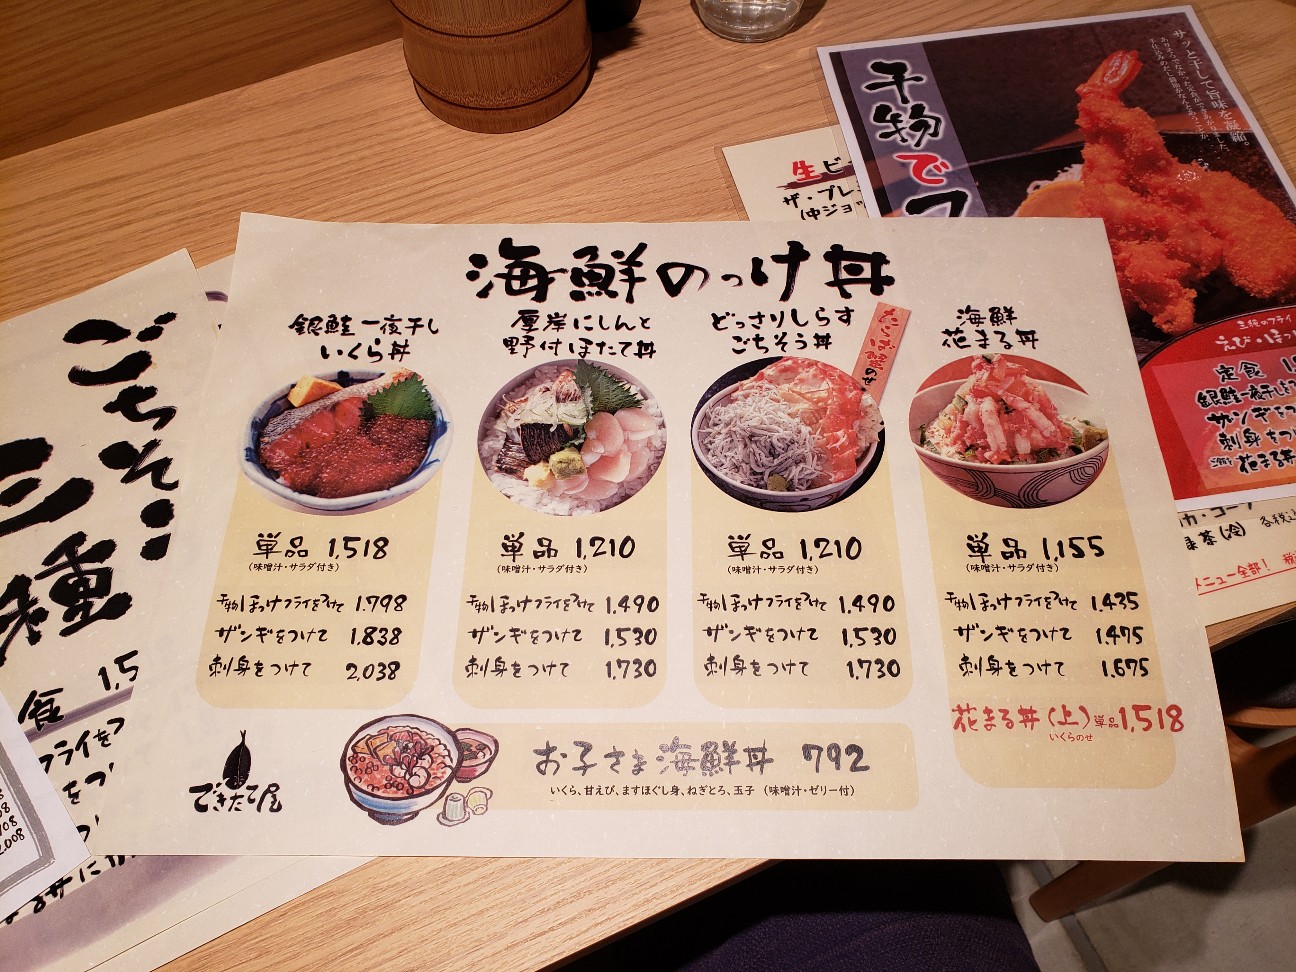 海鮮のっけ丼
銀鮭一夜干し
いくら丼
単品 1,518
(味噌汁・サラダ付き)
干物ほっけフライをつけて 1.798
ザンギをつけて 1.838
刺身をつけて 2,038
厚岸にしんと
野付ほたて丼
単品 1,210
(味噌汁・サラダ付き)
干物ほっけフライをつけて 1.490
ザンギをつけて 1,530
刺身をつけて 1.730
どっさりしらす
ごちそう丼
たらば蟹のせ
単品 1,210
(味噌汁・サラダ付き)
干物ほっけフライをつけて 1.490
ザンギをつけて 1,530
刺身をつけて 1.730
海鮮
花まる丼
単品 1,155
(味噌汁・サラダ付き)
干物ほっけフライをつけて 1.435
ザンギをつけて 1.475
刺身をつけて 1.675
花まる丼(上)単品1,518
いくらのせ
できたて屋
お子さま海鮮丼 792
いくら、甘えび、ますほぐし身、ねぎとろ、玉子 (味噌汁・ゼリー付)
ごちそう
三種
食 1,5
フライをつ
をつ
2.008
干物でフ
サッと干して旨味を凝縮。
生ビ
ザ・プレ
(中ジョッ
三種のフライ
えび・ほっ
定食
銀鮭一夜干し
ザンギをつ
刺身をつ
花まる丼
カ・コーラ
緑茶(冷) 各税込
メニュー全部!